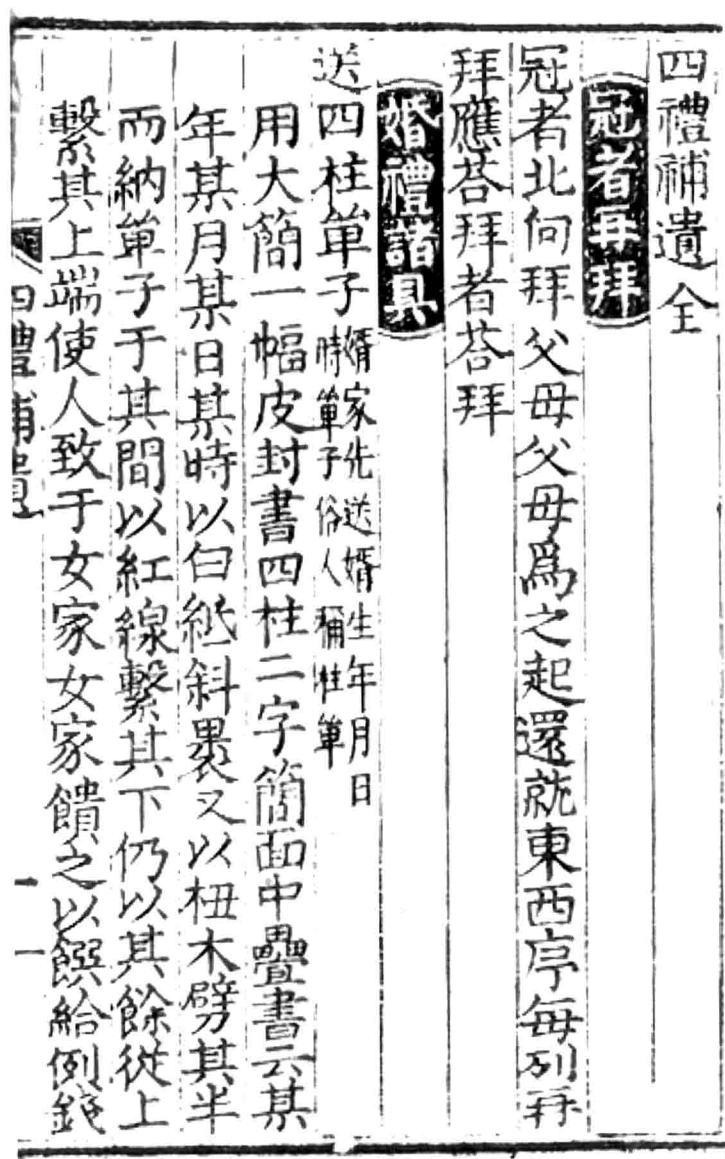 四禮補遺全
冠者再拜
冠者北向拜父母父母爲之起還就東西序每列再
拜應荅拜者荅拜
婚禮諸具
送四柱單子婿家先送婿生年月日
時單子俗人稱柱單
用大簡一幅皮封書四柱二字簡面中疊書云某
年某月某日某時以白紙斜裹又以杻木劈其半
而納單子于其間以紅線繫其下仍以其餘從上
繫其上端使人致于女家女家饋之以饌給例錢
四禮補遺
一